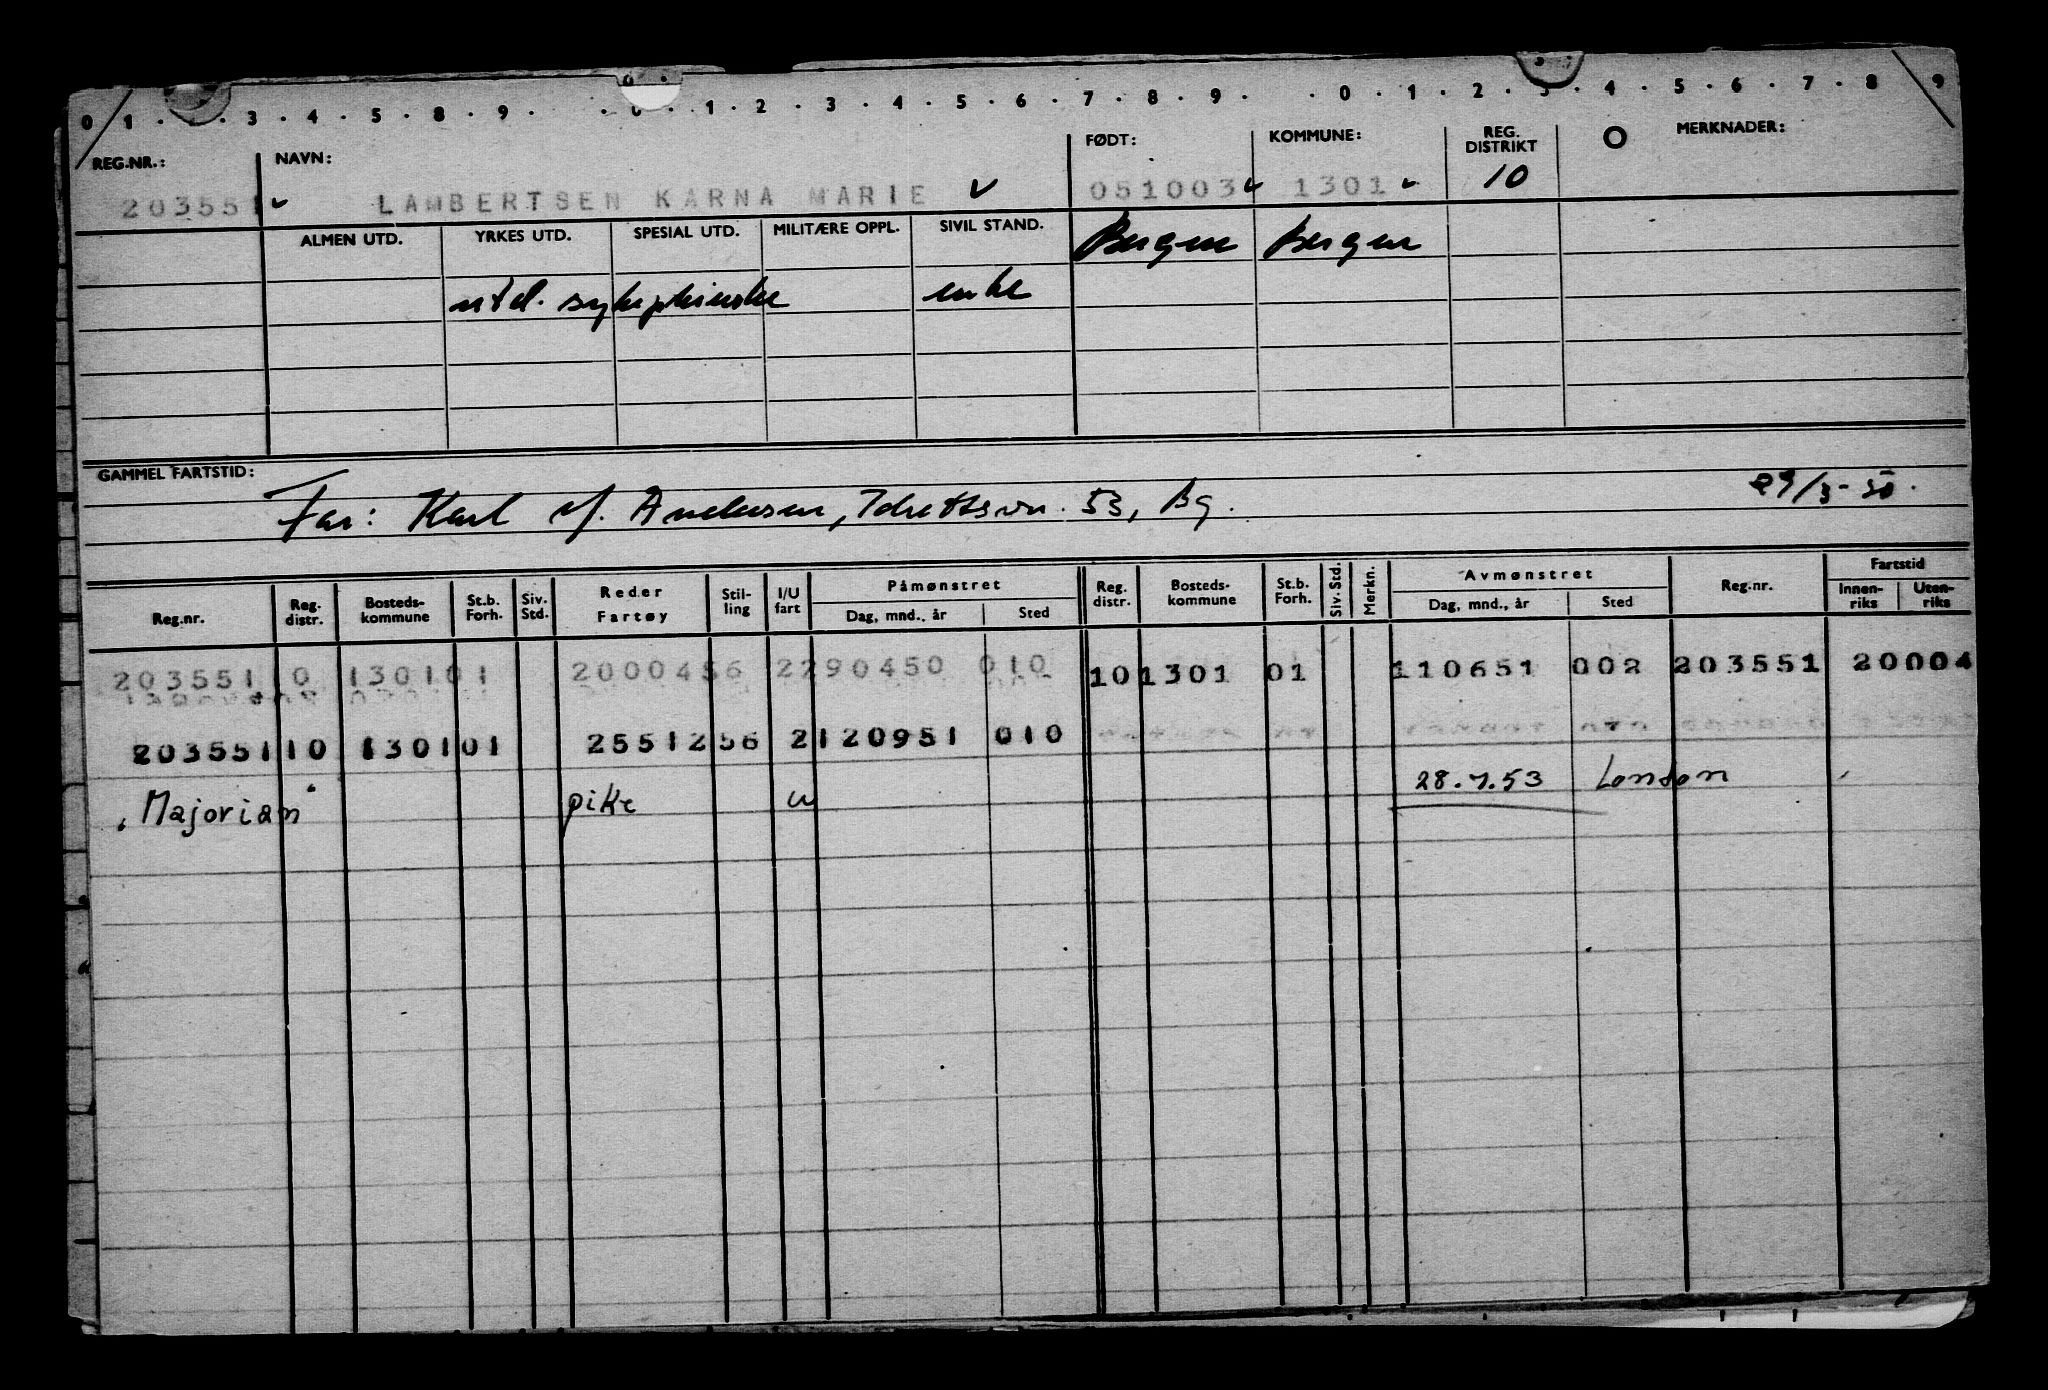 0 1 . . 3 . 4 . 5 . 8 . 9 . . 0 . 1 . 2 . 3 . 4 . 5 . 6 . 7 . 8 . 9 . . 0 . 1 . 2 . 3 . 4 . 5 . 6 . 7 . 8 9
REG.NR.: NAVN: FØDT: KOMMUNE: REG. DISTRIKT O MERKNADER:
203551 LAMBERTSEN KARNA MARIE 051003 1301 10
ALMEN UTD. YRKES UTD. SPESIAL UTD. MILITÆRE OPPL. SIVIL STAND. Bergen Bergen
utd. enke
GAMMEL FARTSTID: 29/3-50.
Far: Karl Andersen, Idrettsvn. 53, Bg.
Reg.nr. Reg. distr. Bosteds-kommune St.b. Forh. Siv. Std. Reder Fartøy Stil-ling I/U fart Påmønstret Dag, mnd., år Sted Reg. distr. Bosteds-kommune St.b. Forh. Siv. Std. Merkn. Avmønstret Dag, mnd., år Sted Reg.nr. Fartstid Innen-riks Uten-riks
203551 10 1301 01 20004 56 2 290450 010 10 1301 01 110651 002 203551 20004
203551 10 1301 01 25512 56 2 120951 010
"Majorian" pike u 28.7.53 London